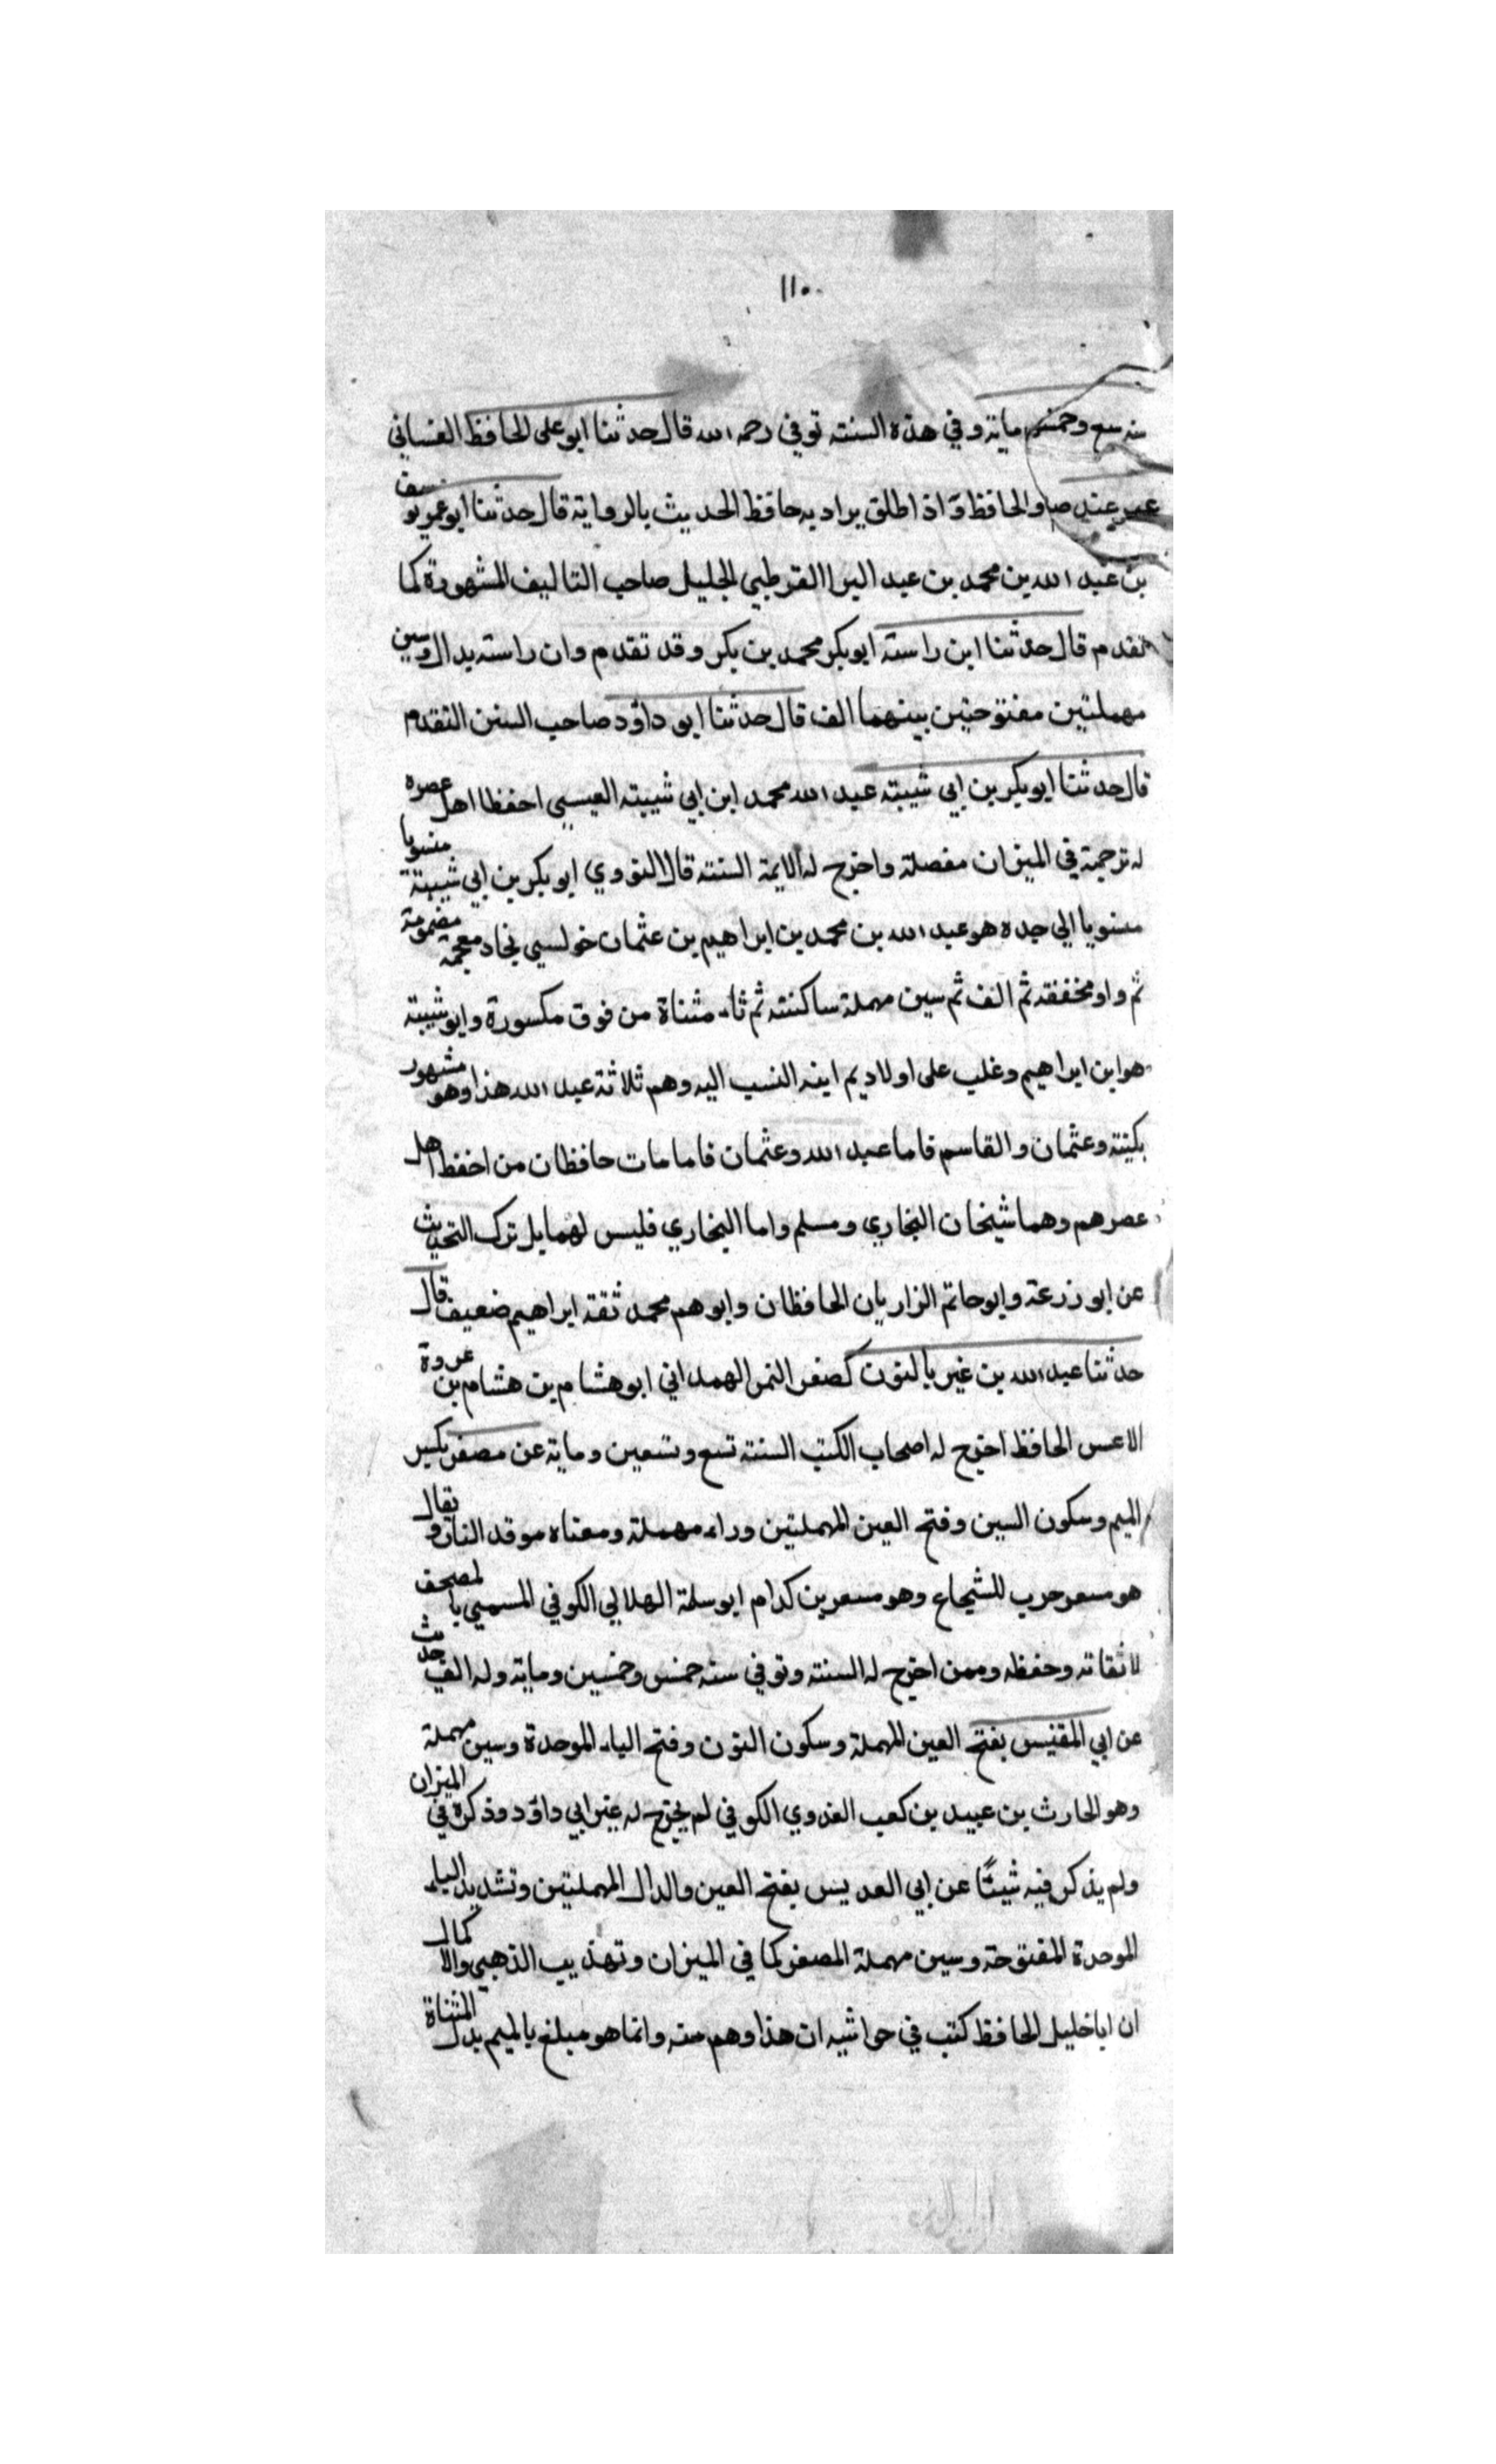 ١١٠
سنه سبع وخمسم ماية وفي هذه السنته توفي رحمه الله قال حدثنا ابو على الحافظ الغساني
والحافظ اذ اطلق يراد به حافظ الحديث بالرواية قال حدثنا ابو عمر يوسف
بن عبد الله بن محمد بن عبد البر القرطبي الجليل صاحب التاليف المشهورة كما
تقدم قال حدثنا ابن راسته ابو بكر محمد بن بكر وقد تقدم وان راسته بدال وسين
مهملتين مفتوحتين بينهما الف قال حدثنا ابو داؤد صاحب السنن التقدم
قال حدثنا ابو بكر بن ابي شيبته عبد الله محمد ابن ابي شيبته العبسي احفظ اهل عصره
له ترجمة في الميزان مفصلة واخرج له الايمة السنته قال النووي ابو بكر بن ابي شيبتة منسوبا
منسوبا الي جده هو عبد الله بن محمد بن ابراهيم بن عثمان خولسي بخاد معجمة مضمومة
ثم واو مخففة ثم الف ثم سين مهملة ساكنته ثم ثاء مثناة من فوق مكسورة وابو شيبته
هو ابن ابراهيم وغلب على اولاديم اينه النسب اليه وهم ثلاثة عبد الله هذا وهو مشهور
بكينته وعثمان والقاسم فاما عبد الله وعثمان فامامات حافظان من احفظ اهل
عصرهم وهما شيخان البخاري ومسلم واما البخاري فليس لهما بل ترك التحديث
عن ابو زرعة وابو حاتم الزاريان الحافظان وابوهم محمد ثقة ابراهيم ضعيف قال
حدثنا عبد الله بن غير بالنون كصغر النمر الهمداني ابو هشام بن هشام بن عروة
الاعمس الحافظ اخرج له اصحاب الكتب السنته تسع وتسعين وماية عن مصغر بكسر
الميم وسكون السين وفتح العين المهملتين وراء مهملة ومعناه موقد النار ويقال
هو مسعر حرب للشجاع وهو مسعر بن كدام ابو سلمة الهلالي الكوفي المسمي بالمصحف
لا ثقاته وحفظه وممن اخرج له السنته وتوفي سنه خمس وخمسين وماية وله الف حديث
عن ابي المقنيس بفتح العين المهملة وسكون النون وفتح الياء الموحدة وسين مهملة
وهو الحارث بن عبيد بن كعب العدوي الكوفي لم يخرج له غير ابي داؤد وذكره في الميزان
ولم يذكر فيه شيئًا عن ابي العديس بفتح العين والدال المهملتين وتشديد الياء
الموحدة المفتوحة وسين مهملة المصغر كما في الميزان وتهذيب الذهبي والاكمال
ان ابا خليل الحافظ كتب في حواشيه ان هذا وهم منه وانما هو مبلغ بالميم بدل المثناة